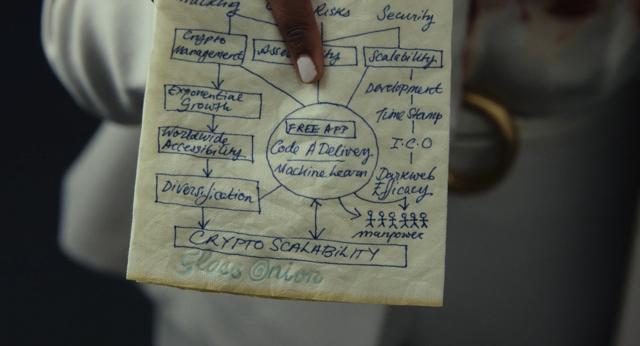 Risks
Security
Crypto
Management
Scalability
Exponential
Growth
Development
Time Stamp
Worldwide
Accessibility
FREE APP
Code A Delivery
Machine Learn
I.C.O
Darkweb
Efficacy
Diversification
manpower
CRYPTO SCALABILITY
Glass Onion